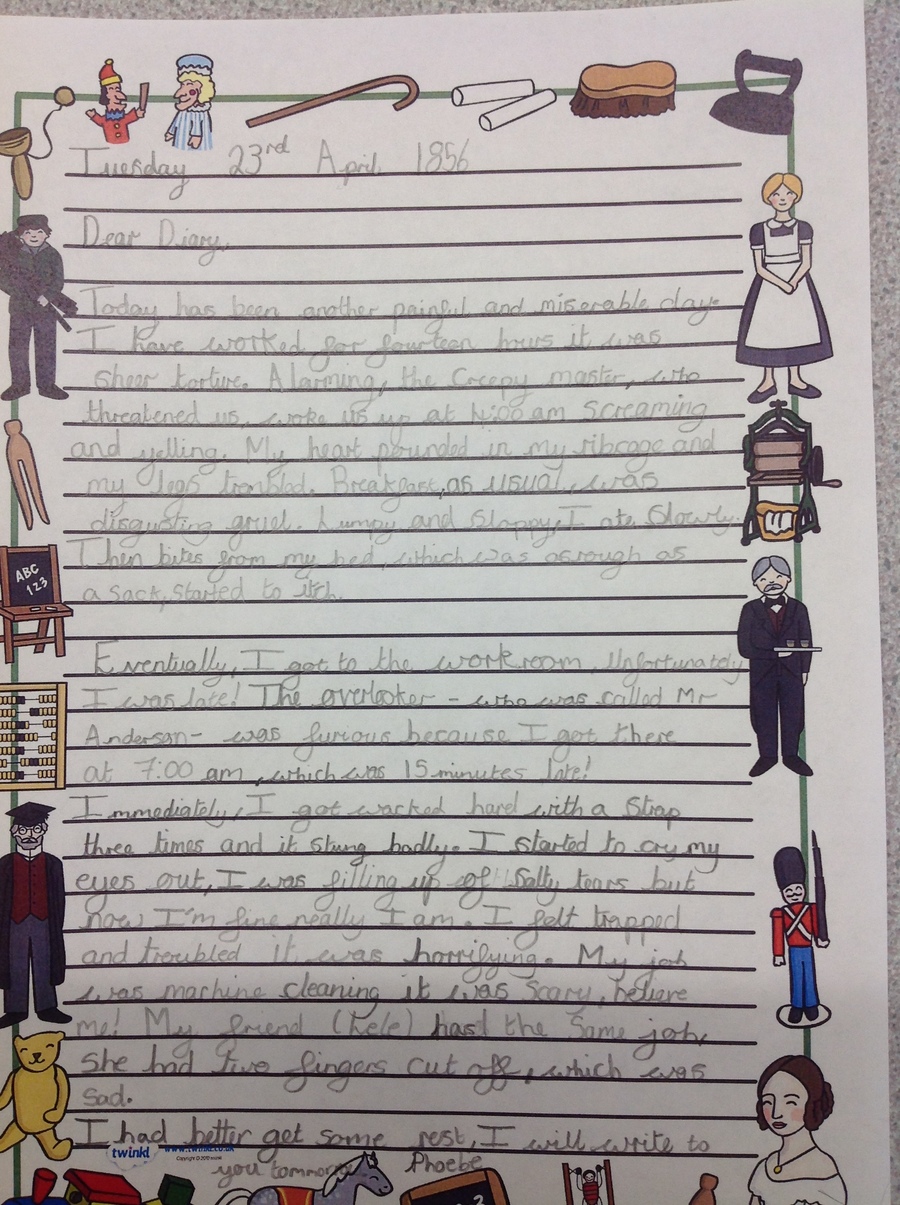 Tuesday 23rd April 1856
Dear Diary,
Today has been another painful and miserable day.
I have worked for fourteen hours it was
sheer torture. Alarming, the Creepy master, who
threatened us, woke us up at 4:00 am Screaming
and yelling. My heart pounded in my ribcage and
my legs trembled. Breakfast, as usual, was
disgusting gruel. Lumpy and Sloppy, I ate Slowly.
Then bites from my bed, which was as rough as
a sack, started to itch.
Eventually, I got to the workroom. Unfortunately
I was late! The overlooker - who was called Mr
Anderson - was furious because I got there
at 7:00 am, which was 15 minutes late!
Immediately, I got wacked hard with a Strap
three times and it stung badly. I started to cry my
eyes out, I was filling up of Salty tears but
now I'm fine really I am. I felt trapped
and troubled it was horrifying. My job
was machine cleaning it was Scary, believe
me! My friend (Lele) had the Same job,
She had five fingers cut off, which was
sad.
I had better get some rest, I will write to
you tommorow Phoebe
twinkl www.twinkl.co.uk
ABC
123